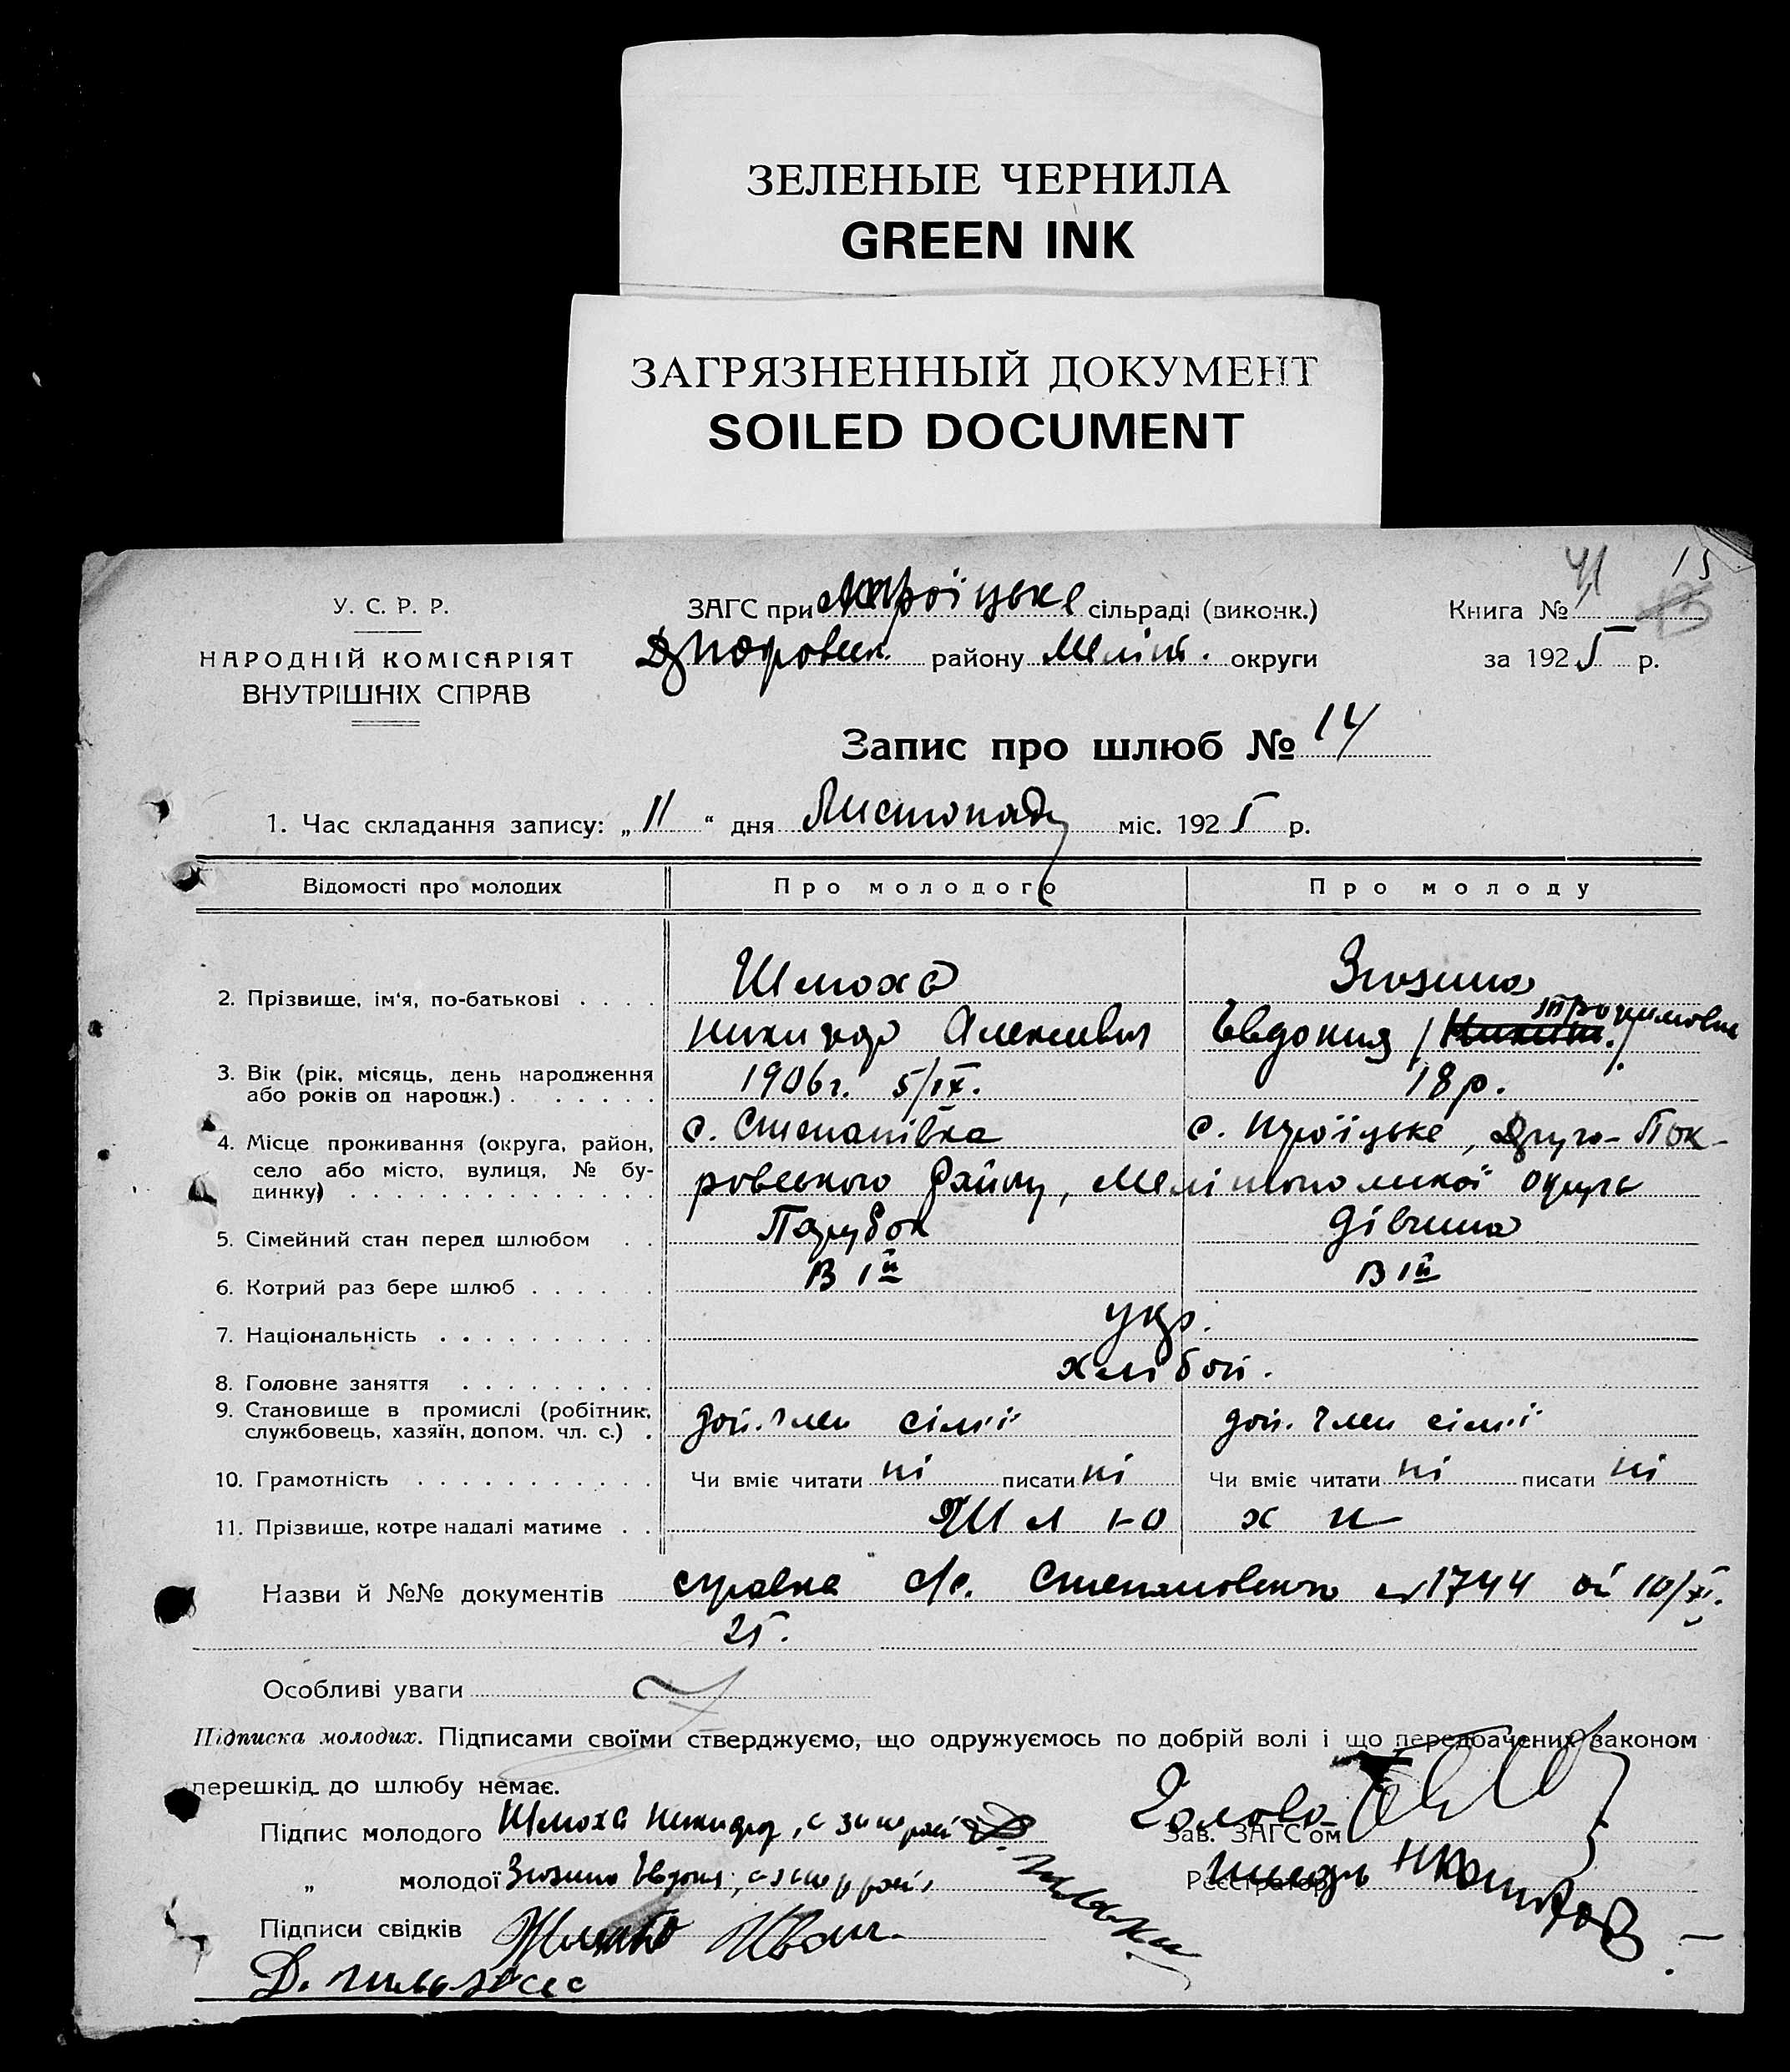 ЗЕЛЕНЫЕ ЧЕРНИЛА
GREEN INK
ЗАГРЯЗНЕННЫЙ ДОКУМЕНТ
SOILED DOCUMENT
41 15
У. С. Р. Р.
НАРОДНІЙ КОМІСАРІЯТ
ВНУТРІШНІХ СПРАВ
ЗАГС при Троїцьке сільраді (виконк.)
району Меліт. округи
Книга №
за 1925 р.
Запис про шлюб № 14
1. Час складання запису: „11“ дня Листопаду міс. 1925 р.
Відомості про молодих Про молодого Про молоду
2. Прізвище, ім'я, по-батькові . . . .
Шлюха
Никифор Алексеевич
Зюзина
Трохимовна
Евдокия
3. Вік (рік, місяць, день народження
або років од народж.) . . . . . .
1906г. 5/IX.
18р.
4. Місце проживання (округа, район,
село або місто, вулиця, № бу-
динку) . . . . . . . . . . . . . .
с. Степанівка
с. Троїцьке, Друго-Пок-
ровського району, Мелітопольської округи
5. Сімейний стан перед шлюбом . . Парубок Дівчина
6. Котрий раз бере шлюб . . . . . . В Iй В Iй
7. Національність . . . . . . . . . . укр.
8. Головне заняття . . . . . . . . . хлібой.
9. Становище в промислі (робітник,
службовець, хазяїн, допом. чл. с.) .
доп. член сім'ї доп. член сім'ї
10. Грамотність . . . . . . . . . . . Чи вміє читати ні писати ні Чи вміє читати ні писати ні
11. Прізвище, котре надалі матиме . . Шлюхи
Назви й №№ документів справка с/с. Степановского №1744 от 10/XI.
25.
Особливі уваги
Підписка молодих. Підписами своїми стверджуємо, що одружуємось по добрій волі і що передбачених законом
перешкід до шлюбу немає.
Підпис молодого Шлюха Никифор
Голова
Зав. ЗАГС'ом
„ молодої Зюзина Евдокия
Реєстратор
Підписи свідків Иван